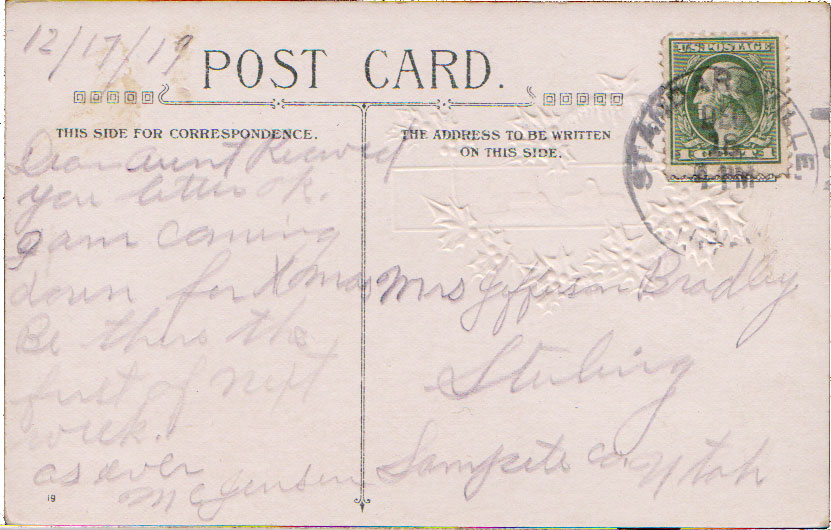 12/17/19
POST CARD.
THIS SIDE FOR CORRESPONDENCE.
THE ADDRESS TO BE WRITTEN
ON THIS SIDE.
U.S. POSTAGE
1
STANDARDVILLE
DEC
16
4 PM
Dear Aunt Recived
you letter ok.
I am coming
down for Xmas
Be there the
first of next
week.
as ever
Mc Jensen
Mrs Jefferson Bradley
Sterling
Sampete Co Utah
19